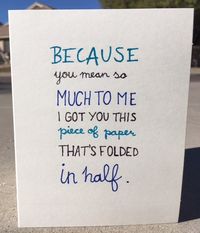 BECAUSE
you mean so
MUCH TO ME
I GOT YOU THIS
piece of paper
THAT'S FOLDED
in half.